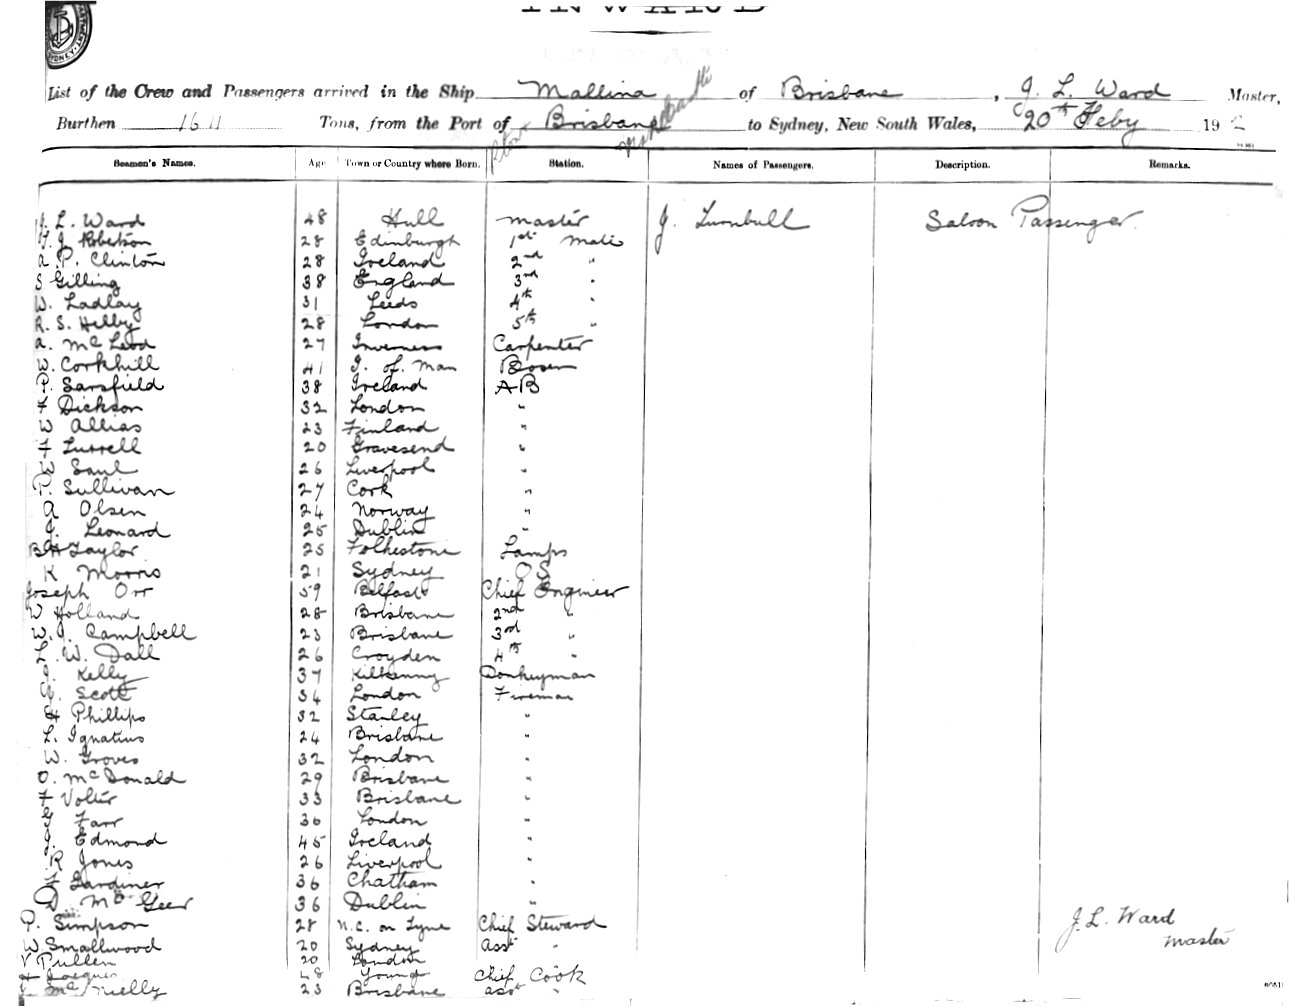 INWARD
List of the Crew and Passengers arrived in the Ship Mallina of Brisbane, J. L. Ward Master,
Burthen 1611 Tons, from the Port of Brisbane to Sydney, New South Wales, 20th Feby 19 2
Seamen's Names. Age Town or Country where Born. Station. Names of Passengers. Description. Remarks.
J. L. Ward 48 Hull Master J. Turnbull Saloon Passenger.
J. Robertson 28 Edinburgh 1st Mate
A. P. Clinton 28 Ireland 2nd "
S Gilling 38 England 3rd "
W. Ladlay 31 Leeds 4th "
R. S. Helby 28 London 5th "
A. McLeod 27 Inverness Carpenter
W. Corkhill 41 I. of. Man Bosen
P. Sarsfield 38 Ireland AB
F Dickson 32 London "
W Allias 23 Finland "
F Turrell 20 Gravesend "
W Saul 26 Liverpool "
P. Sullivan 27 Cork "
A Olsen 24 Norway "
J. Leonard 25 Dublin "
B H Taylor 25 Folkestone Lamps
K Morris 21 Sydney OS
Joseph Orr 59 Belfast Chief Engineer
W Holland 28 Brisbane 2nd "
W. J. Campbell 23 Brisbane 3rd "
L. W. Dall 26 Croyden 4th "
J. Kelly 37 Kilkenny Donkeyman
Scott 34 London Fireman
H Phillips 32 Stanley "
L. Ignatius 24 Brisbane "
W. Groves 32 London "
O. McDonald 29 Brisbane "
F Volter 33 Brisbane "
G Farr 36 London "
J. Edmond 45 Ireland "
R Jones 26 Liverpool "
F Gardiner 36 Chatham "
D. McGeer 36 Dublin "
P. Simpson 28 N.C. on Tyne Chief Steward J. L. Ward
W Smallwood 20 Sydney Asst " Master
V Pullen 20 London
H Jacques 48 Young Chief Cook
McNielly 23 Brisbane asst "